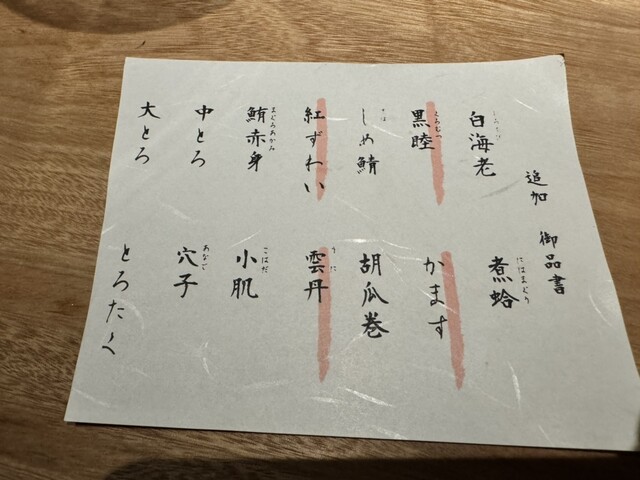 追加 御品書
白海老
しろえび
黒睦
くろむつ
しめ鯖
さば
紅ずわい
鮪赤身
まぐろあかみ
中とろ
大とろ
煮蛤
にはまぐり
かます
胡瓜巻
雲丹
うに
小肌
こはだ
穴子
あなご
とろたく